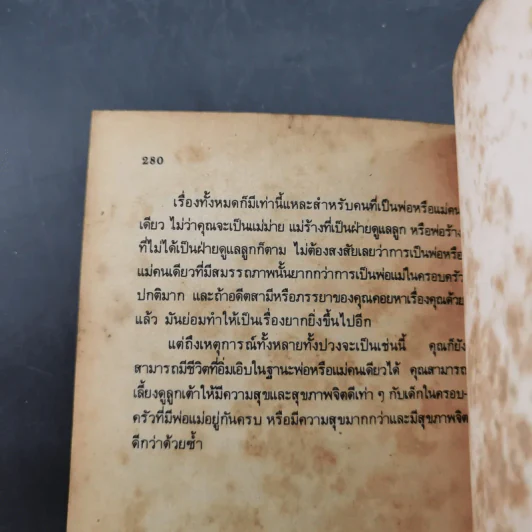 280
เรื่องทั้งหมดก็มีเท่านี้แหละสำหรับคนที่เป็นพ่อหรือแม่คน
เดียว ไม่ว่าคุณจะเป็นแม่ม่าย แม่ร้างที่เป็นฝ่ายดูแลลูก หรือพ่อร้าง
ที่ไม่ได้เป็นฝ่ายดูแลลูกก็ตาม ไม่ต้องสงสัยเลยว่าการเป็นพ่อหรือ
แม่คนเดียวที่มีสมรรถภาพนั้นยากกว่าการเป็นพ่อแม่ในครอบครัว
ปกติมาก และถ้าอดีตสามีหรือภรรยาของคุณคอยหาเรื่องคุณด้วย
แล้ว มันย่อมทำให้เป็นเรื่องยากยิ่งขึ้นไปอีก
แต่ถึงเหตุการณ์ทั้งหลายทั้งปวงจะเป็นเช่นนี้ คุณก็ยัง
สามารถมีชีวิตที่อิ่มเอิบในฐานะพ่อหรือแม่คนเดียวได้ คุณสามารถ
เลี้ยงดูลูกเต้าให้มีความสุขและสุขภาพจิตดีเท่า ๆ กับเด็กในครอบ-
ครัวที่มีพ่อแม่อยู่กันครบ หรือมีความสุขมากกว่าและมีสุขภาพจิต
ดีกว่าด้วยซ้ำ